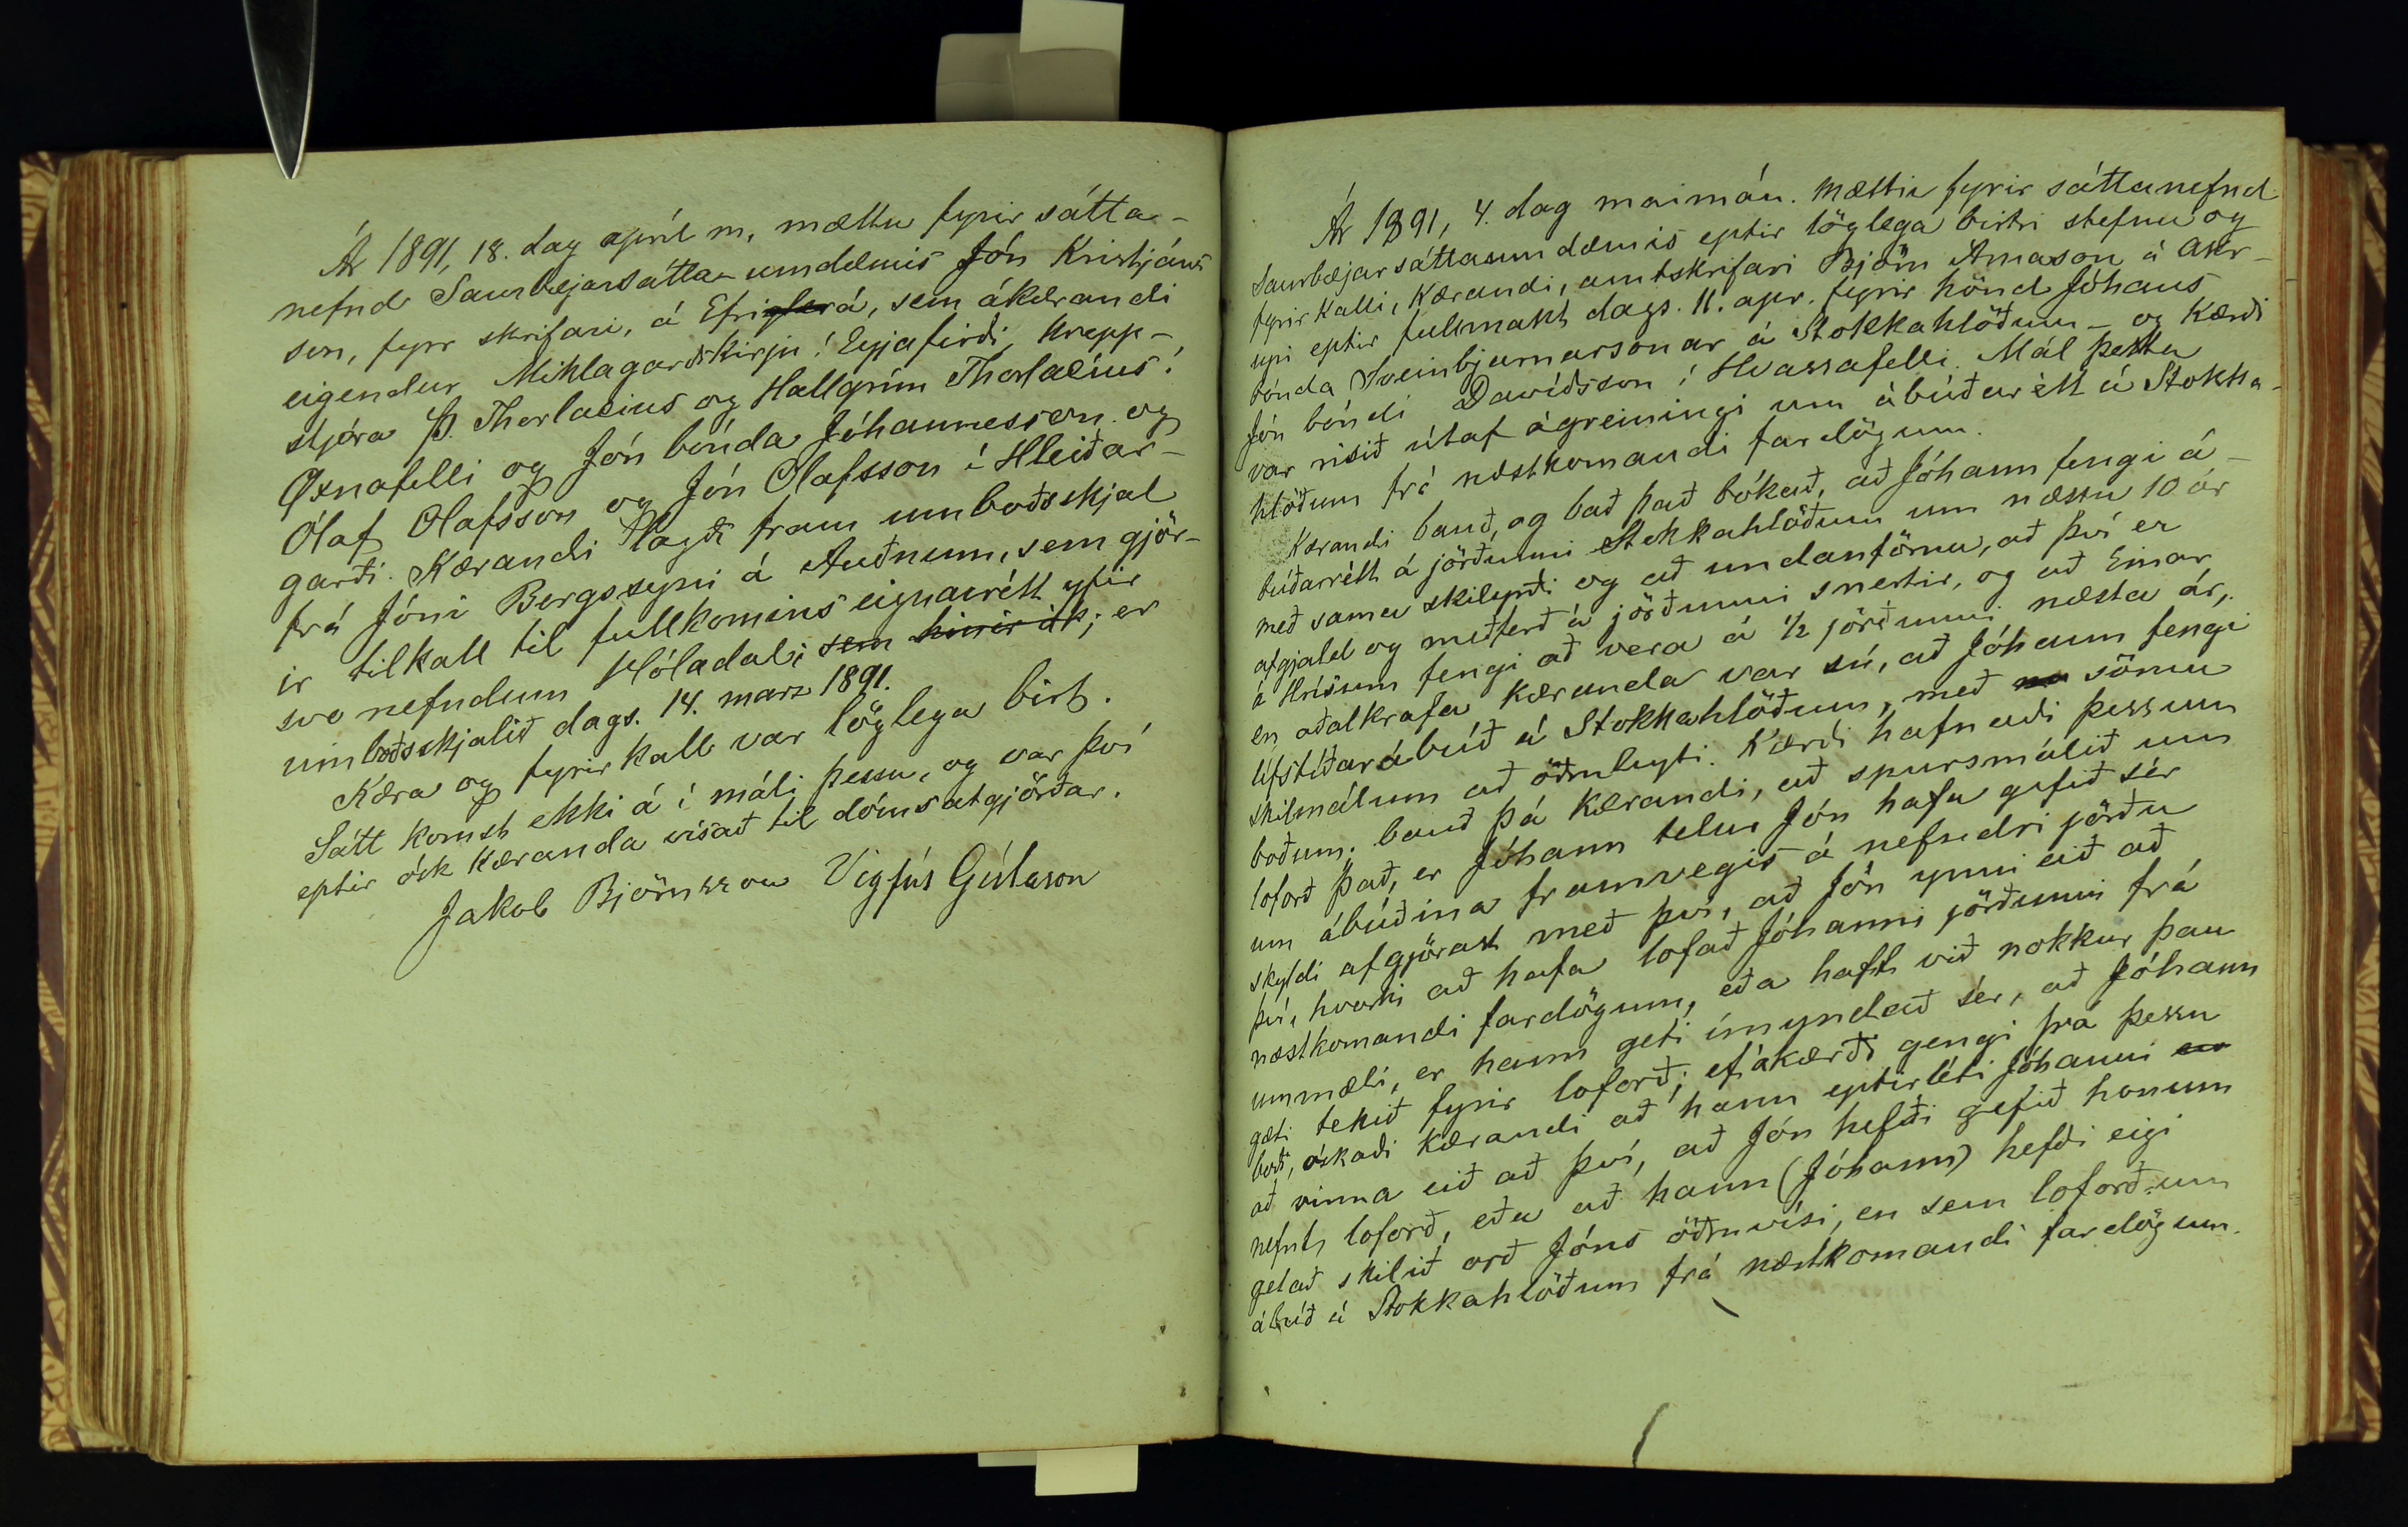 Ár 1891, 18. dag apríl m, mættu fyrir sátta-
nefnd Saurbæjarsátta-umdæmis Jón Kristjáns
son, fyrr skrifari, á Efri glerá, sem ákærandi
eigendur Miklagarðskirkju í Eyjafirði, hrepp-
stjóra Þ. Thorlacius og Hallgrím Thorlacíus í
Öxnafelli og Jón bónda Jóhannesson og
Ólaf Olafsson og Jón Olafsson í Hleiðar-
garði. Kærandi lagði fram umboðsskjal
frá Jóni Bergssyni á Auðnum, sem gjör-
ir tilkall til fullkomins eignarrétt yfir
svo nefndum Hóladal; sem hinir; er
umboðsskjalið dags. 14. marz 1891.
Kæra og fyrirkall var löglega birt.
Sátt komst ekki á í máli þessu, og var því
eptir ósk kæranda vísað til dómsatgjörðar.
Jakob Björnsson Vigfús Gíslason
Ár 1891, 4. dag maimán. mættu fyrir sáttanefnd
Saurbæjarsáttaumdæmis eptir löglega birtri stefnu og
fyrirkalli, kærandi, amtskrifari Björn Árnason á Akr-
uyri eptir fullmakt dags. 11. apr. fyrir hönd Jóhans
bónda Sveinbjarnarsonar á Stokkahlöðum – og kærði
Jón bóndi Davíðsson í Hvassafelli. Mál þetta
var risið útaf ágreiningi um ábúðarrétt á Stokka-
hlöðum frá næstkomandi fardögum.
Kærandi bauð, og bað það bókað, að Jóhann fengi á-
búðarrétt á jörðunni Stokkahlöðum um næstu 10 ár
með sama skilyrði og að undanförnu, að því er
afgjald og meðferð á jörðunni snertir, og að Einar
á Hrísum fengi að vera á ½ jörðunni næsta ár,
en aðalkrafa kæranda var sú, að Jóhann fengi
lífstíðarábúð á Stokkahlöðum, með sömu
skilmálum að öðruleyti. Kærði hafnaði þessum
boðum. bauð þá kærandi, að spursmálið um
loforð það, er Jóhann telur Jón hafa gefið sér
um ábúðina framvegis á nefndri jörðu
skyldi afgjörast með því, að Jón ynni eið að
því, hvorki að hafa lofað Jóhanni jörðunni frá
næstkomandi fardögum, eða haft við nokkur þau
ummæli, er hann geti ímyndað sér, að Jóhann
gæti tekið fyrir loforð; ef ákærði gengi frá þessu
boði, óskaði kærandi að hann eptirléti Jóhanni
að vinna eið að því, að Jón hefði gefið honum
nefnt loforð, eða að hann (Jóhann) hefði eigi
getað skilið orð Jóns öðruvísi, en sem loforð um
ábúð á Stokkahlöðum frá næstkomandi fardögum.